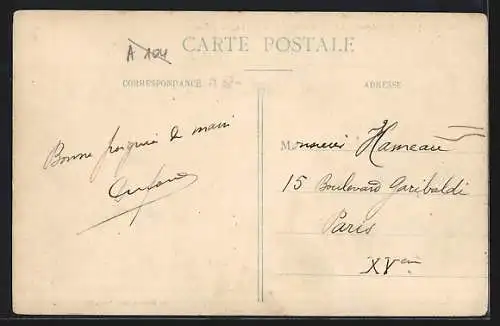 A 104
CARTE POSTALE
CORRESPONDANCE
ADRESSE
Bonne poignée de main
Monsieur Hameau
15 Boulevard Garibaldi
Paris
XVem